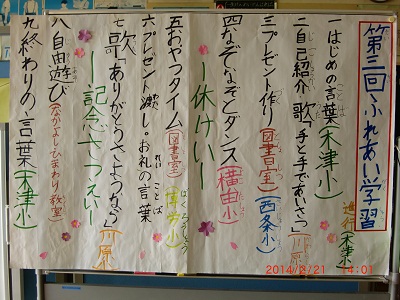 第三回ふれあい学習
進行(木津小)
一はじめの言葉(木津小)
二自己紹介 歌「手と手であいさつ」(川原)
三プレゼント作り(図書室)(西条小)
四なぞなぞとダンス(横田小)
ー休けいー
五おやつタイム(図書室)(博労小)
六プレゼント渡し。お礼の言葉
七歌「ありがとうさようなら」(川原小)
ー記念さつえいー
八自由遊び(なかよし・ひまわり教室)
九終わりの言葉(木津小)
2014/2/21 14:01